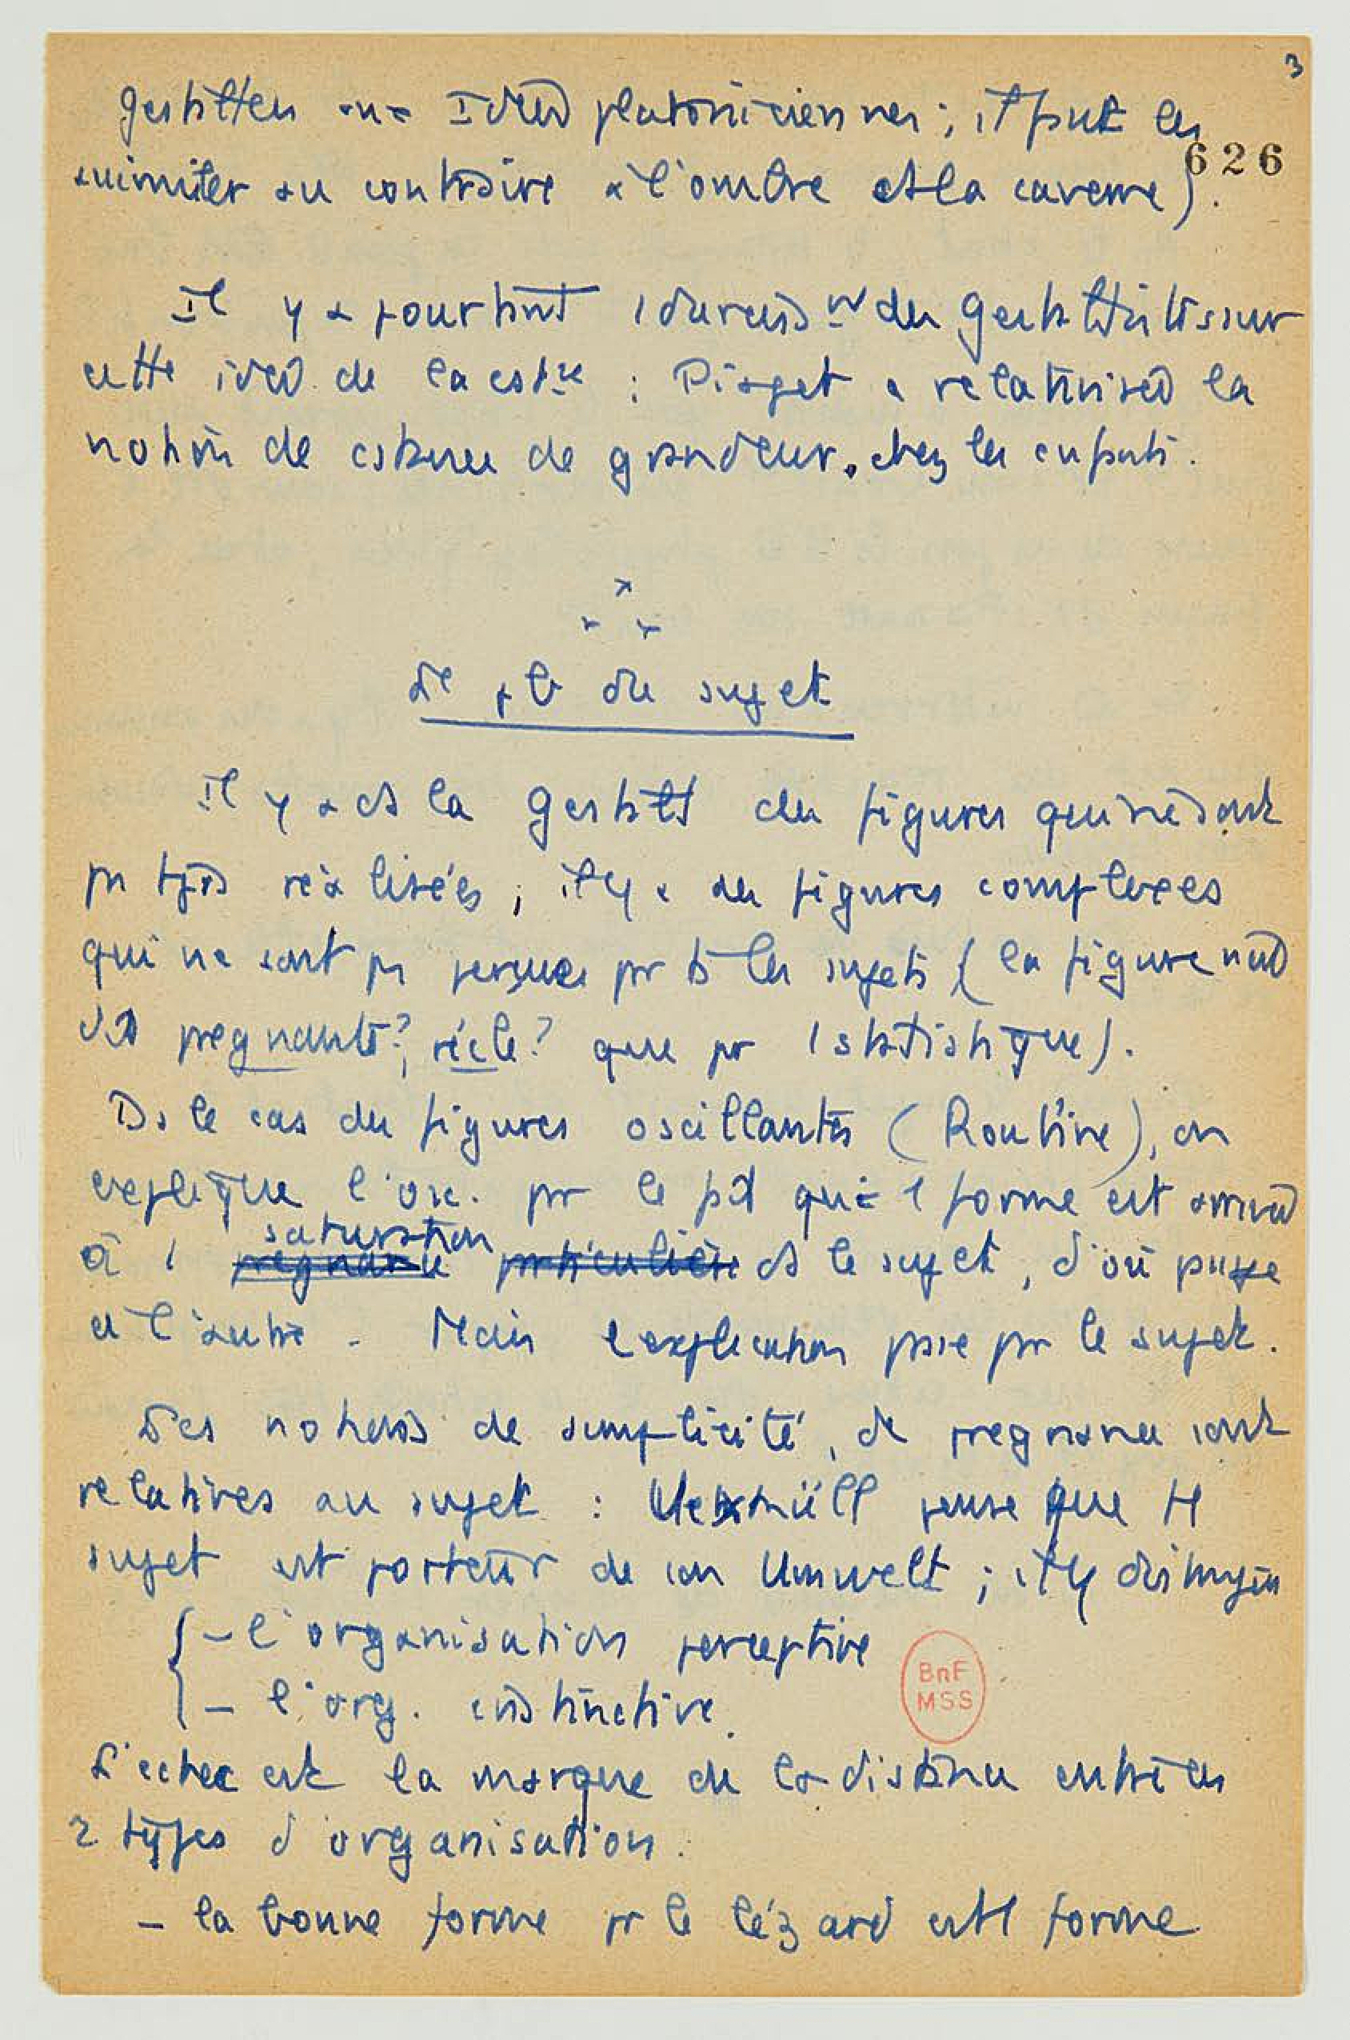 3
Gestalten aux Idées platoniciennes ; il faut les
626
assimiler au contraire à l'ombre ds la caverne).
Il y a pourtant 1 des Gestaltistes sur
cette idée de la cste : Piaget a relativisé la
notion de cstance de grandeur chez les enfants.
x
x x
Le pb du sujet
Il y a ds la Gestalt des figures qui ne sont
pas tjrs réalisées ; il y a des figures complexes
qui ne sont pas perçues par ts les sujets (la figure
prégnante?, réelle? que pr 1 statistique).
Ds le cas des figures oscillantes (Routine), on
explique l'osc. par le fait qu' 1 forme est arrivée
à 1 saturation ds le sujet, d'où passe
à l'autre. Mais l'explication passe par le sujet.
Les notions de simplicité, de prégnance sont
relatives au sujet : Uexküll pense que tt
sujet est porteur de son Umwelt ; il y distingue
{ - l'organisation perceptive
- l'org. instinctive.
L'échec est la marque de la distance entre les
2 types d'organisation.
- la bonne forme pr le lézard est 1 forme
BnF
MSS